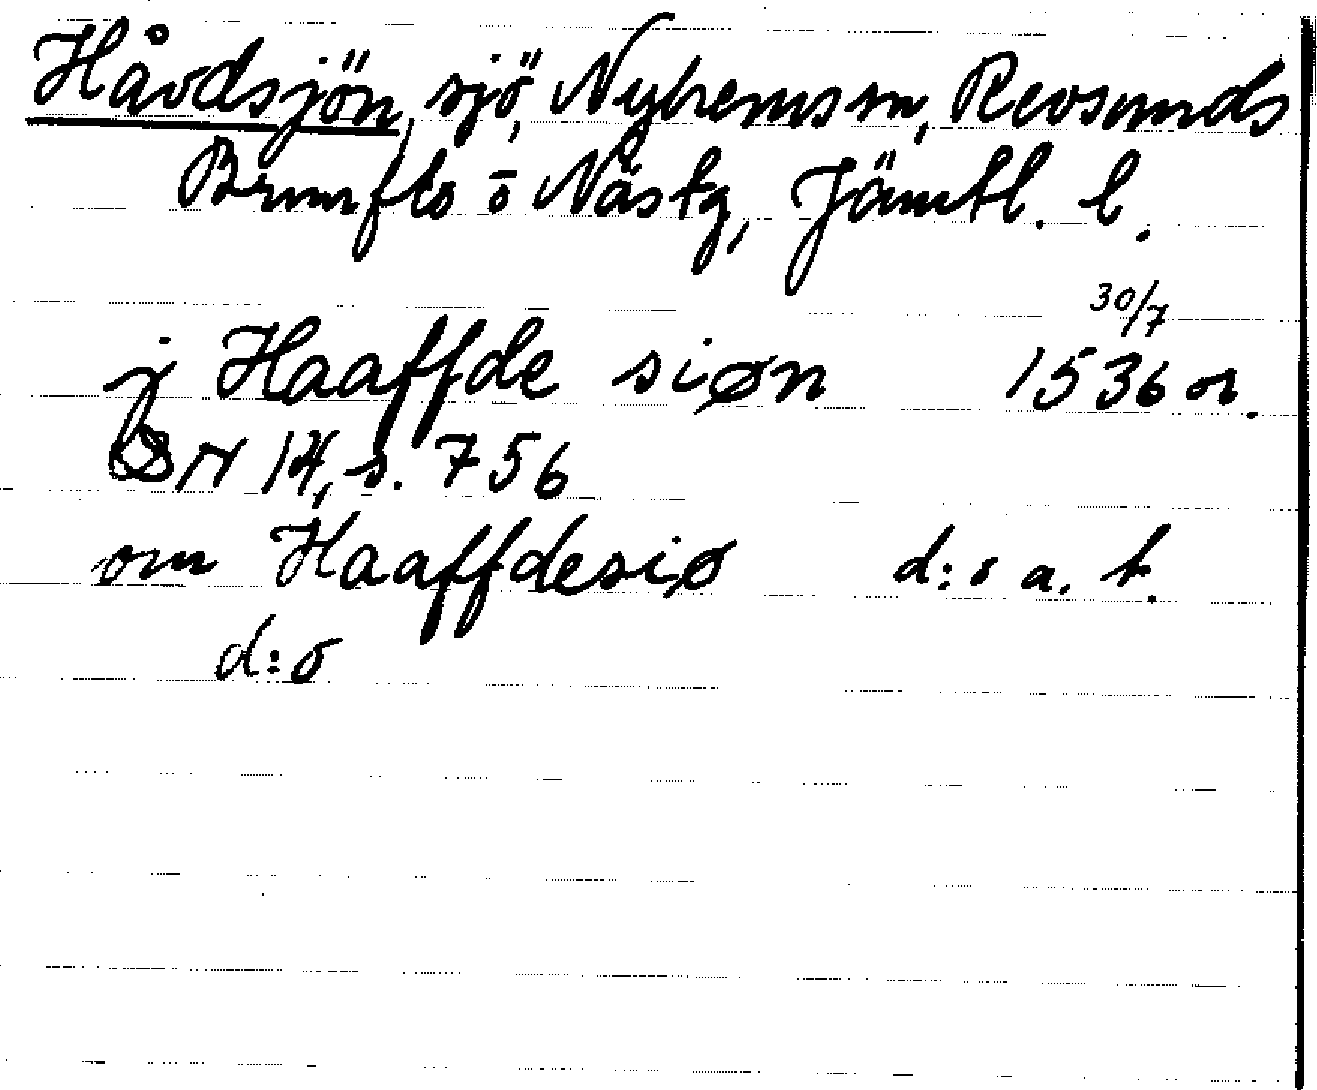 Håvdsjön, sjö, Nyhems sn, Revsunds
Brunflo o Näs tg, Jämtl. l.
j Haaffde siøn 30/7 1536 or.
DN 14, s. 756
om Haaffdesiø d:o a. st.
d:o